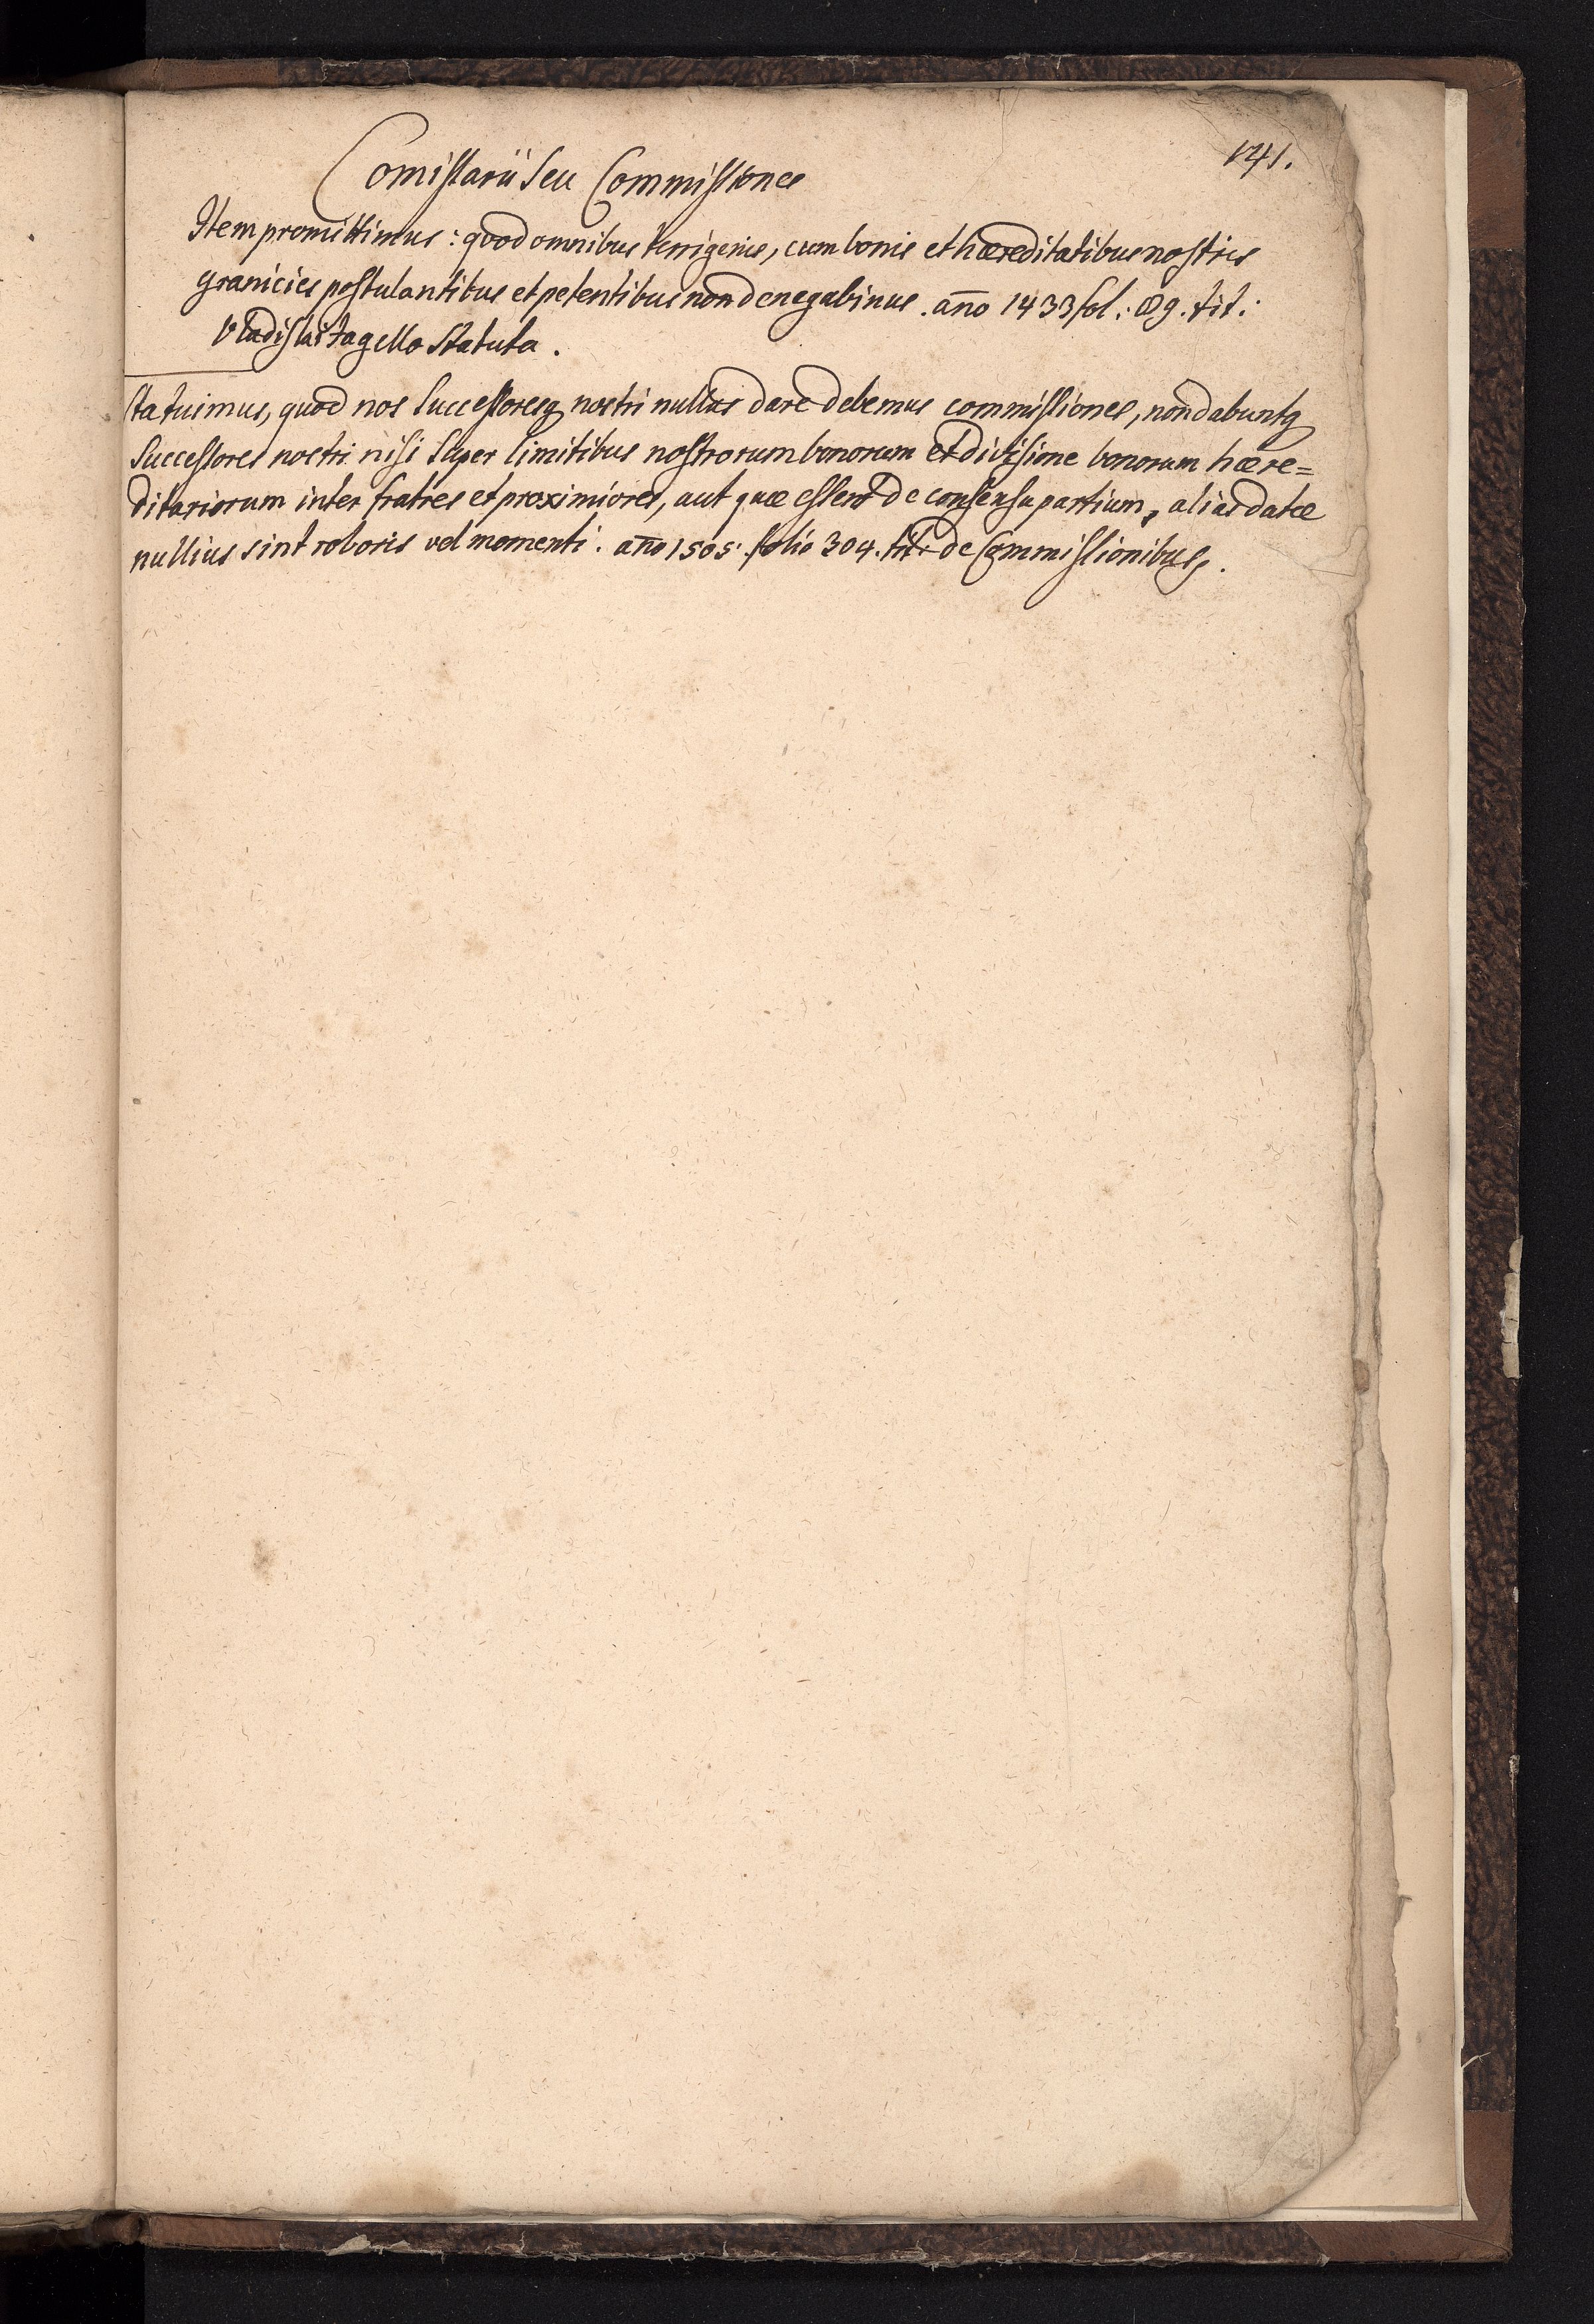 141.
Comissarii seu Commissiones
Item promittimus: quod omnibus terrigenis, cum bonis et hæreditatibus nostris
granicies postulantibus et petentibus non denegabimus. año 1433 fol: 89. tit:
Vladislai Jagello Statuta.
Statuimus, quod nos Successoresq nostri nullas dare debemus commissiones, non dabuntq
Successores nostri nisi Super limitibus nostrorum bonorum et divisione bonorum hære=
ditariorum inter fratres et proximiores, aut quæ essent de consensu partium, alias datæ
nullius sint roboris vel momenti. año 1505. folio 304. tit: de Commissionibus.